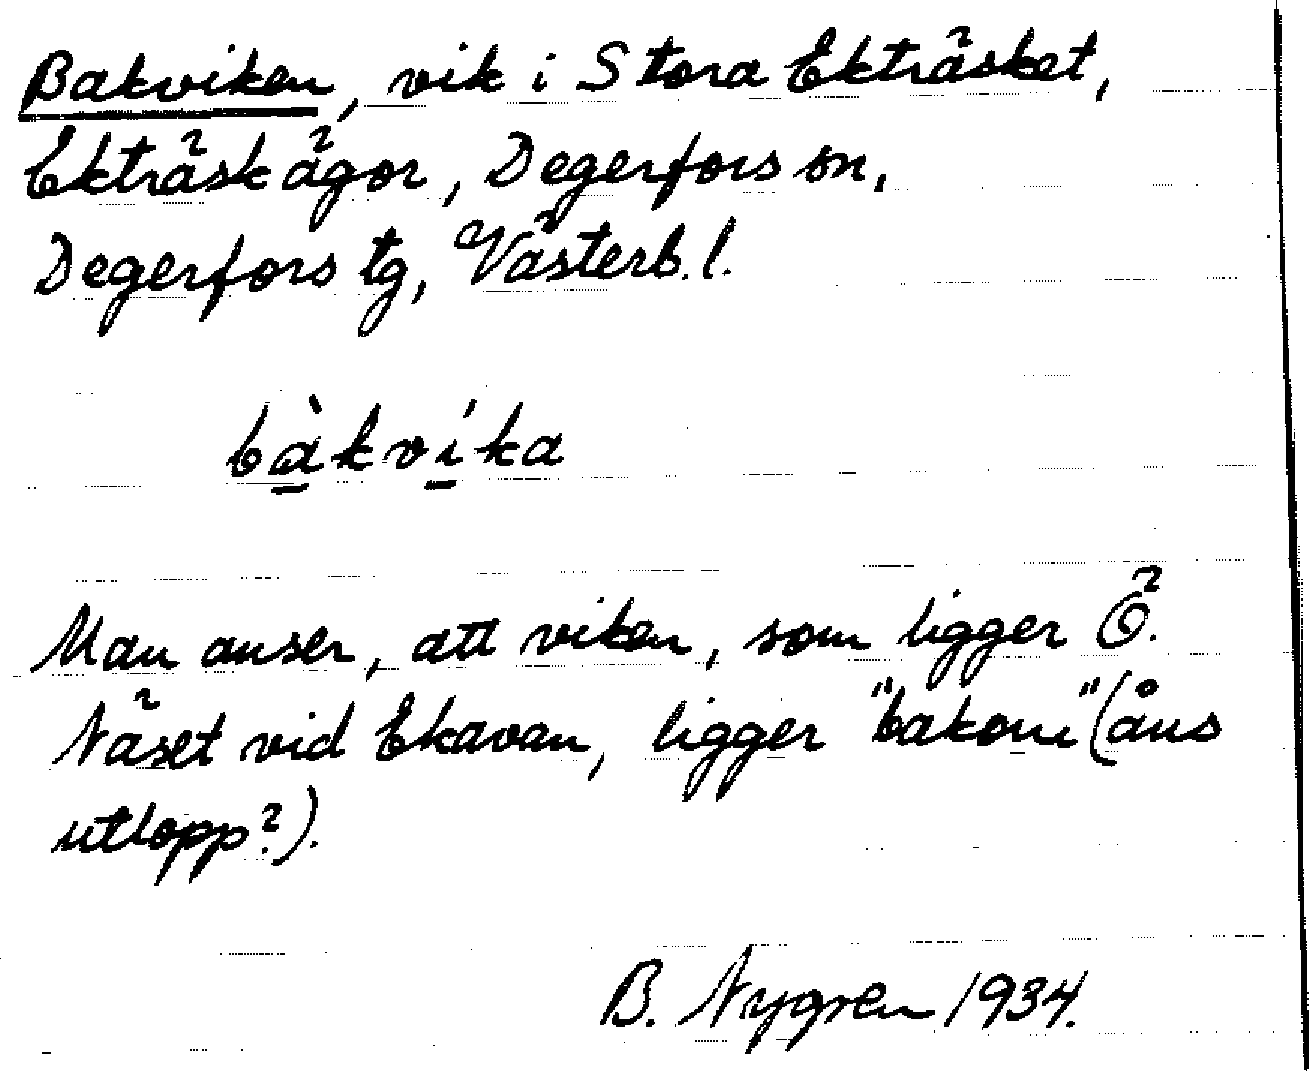 Bakviken, vik i Stora Ekträsket,
Ekträskägor, Degerfors sn,
Degerfors tg, Västerb. l.
bàkvíka
Man anser, att viken, som ligger Ö.
Näset vid Ekavan, ligger "bakom" (åns
utlopp?).
B. Nygren 1934.